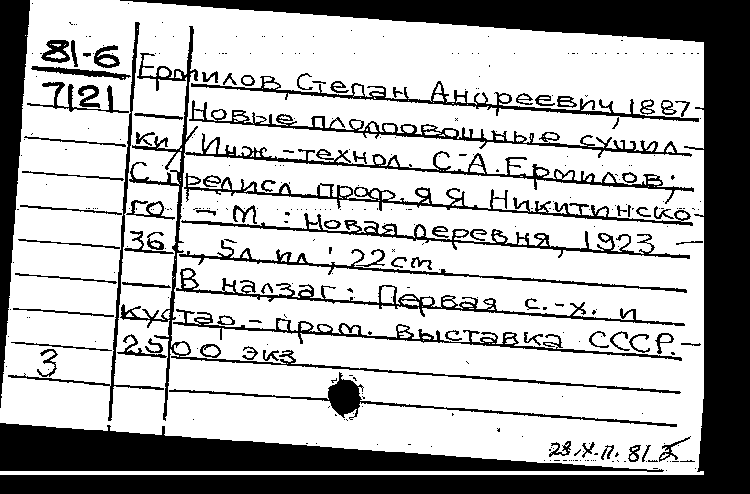 81-6
7121
Ермилов, Степан Андреевич, 1887-
Новые плодоовощные сушил-
ки / Инж.-технол. С.А.Ермилов;
С предисл. проф. Я.Я. Никитинско-
го. - М.: Новая деревня, 1923 -
36 с., 5л. ил.; 22 см.
В надзаг: Первая с.-х. и
кустар.-пром. выставка СССР. -
2500 экз
3